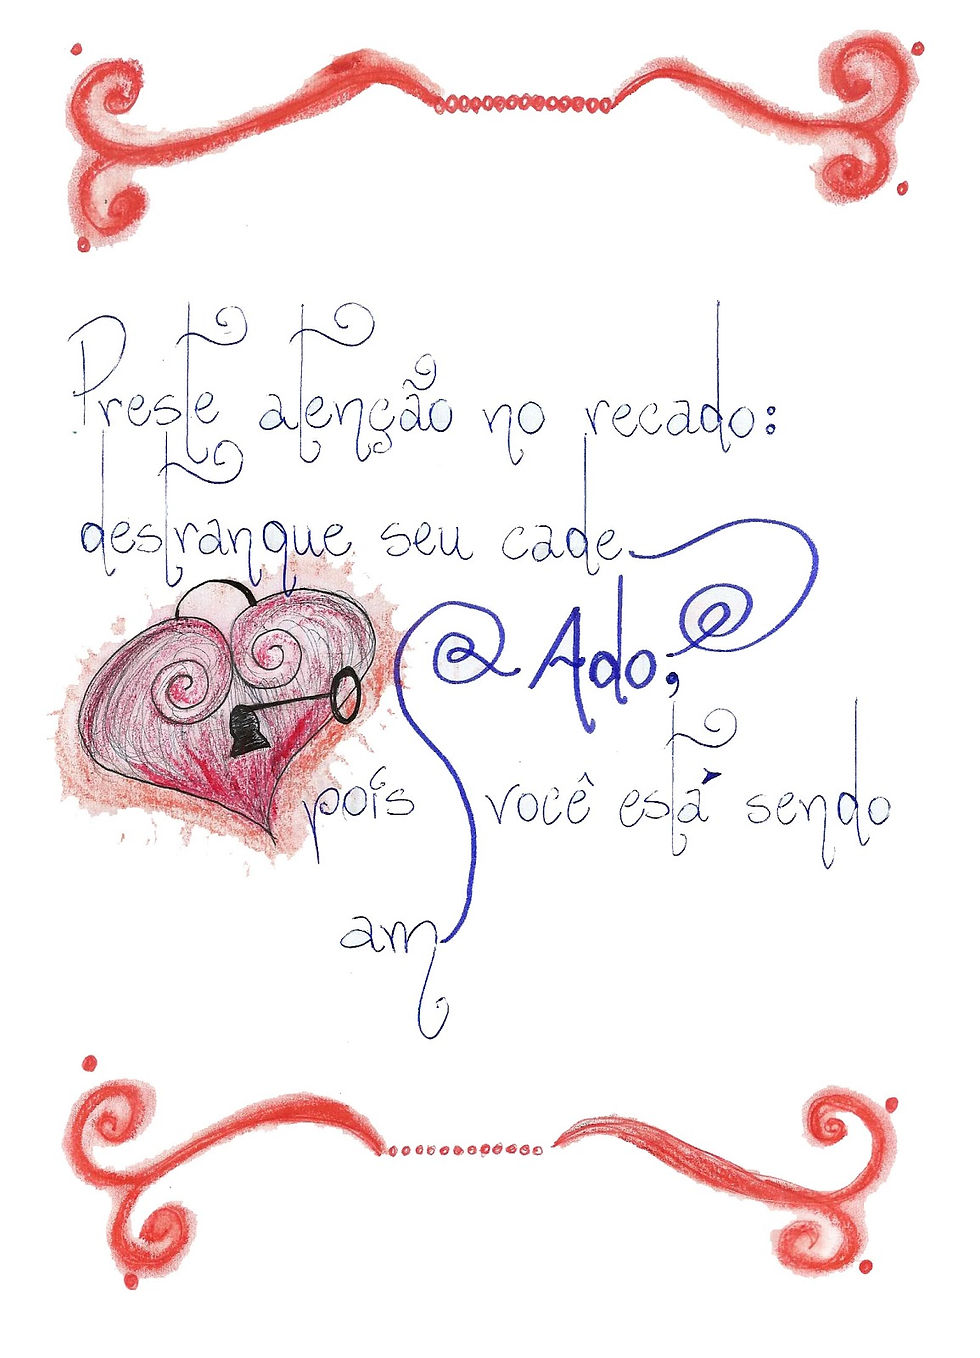 Preste atenção no recado:
destranque seu cade
Ado,
pois você está sendo
am